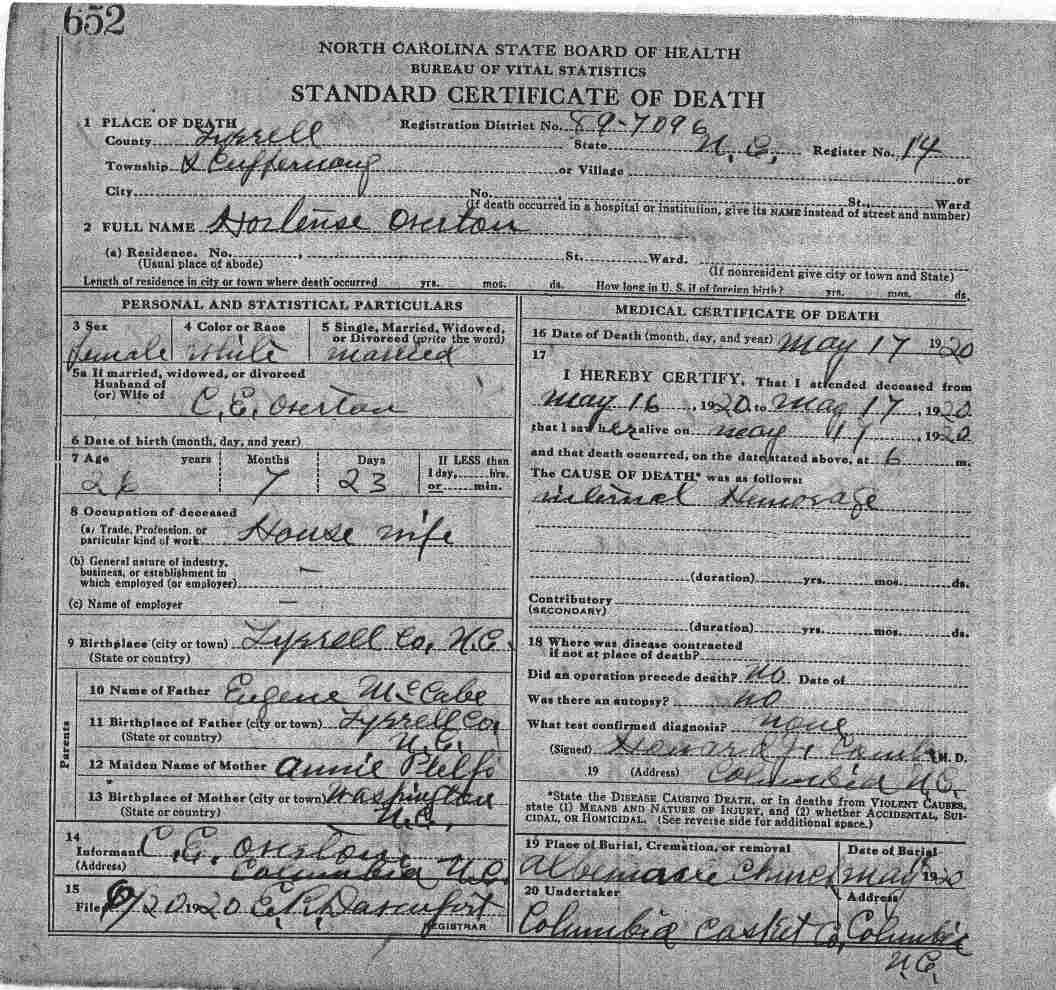 652
NORTH CAROLINA STATE BOARD OF HEALTH
BUREAU OF VITAL STATISTICS
STANDARD CERTIFICATE OF DEATH
1 PLACE OF DEATH Registration District No. 89-7096
County Tyrrell State N. C. Register No. 14
Township or Village or
City No. St., Ward
(If death occurred in a hospital or institution, give its NAME instead of street and number)
2 FULL NAME Hortense Overton
(a) Residence. No. , St. Ward.
(Usual place of abode) (If nonresident give city or town and State)
Length of residence in city or town where death occurred yrs. mos. ds. How long in U. S. if of foreign birth? yrs. mos. ds.
PERSONAL AND STATISTICAL PARTICULARS
3 Sex 4 Color or Race 5 Single, Married, Widowed,
or Divorced (write the word)
female White married
5a If married, widowed, or divorced
Husband of
(or) Wife of C. E. Overton
6 Date of birth (month, day, and year)
7 Age years Months Days If LESS than
1 day, hrs.
or min.
26 7 23
8 Occupation of deceased
(a) Trade, Profession, or
particular kind of work House wife
(b) General nature of industry,
business, or establishment in
which employed (or employer) —
(c) Name of employer —
9 Birthplace (city or town) Tyrrell Co, N.C.
(State or country)
Parents
10 Name of Father Eugene McCabe
11 Birthplace of Father (city or town) Tyrrell Co,
(State or country) N.C.
12 Maiden Name of Mother Annie
13 Birthplace of Mother (city or town) Washington
(State or country) N.C.
14
Informant C. E. Overton
(Address) Columbia N.C.
15
Filed 6/20 1920 E. R. Davenport
REGISTRAR
MEDICAL CERTIFICATE OF DEATH
16 Date of Death (month, day, and year) May 17 1920
17
I HEREBY CERTIFY, That I attended deceased from
May 16, 1920, to May 17, 1920
that I saw her alive on May 17, 1920
and that death occurred, on the date stated above, at 6 m.
The CAUSE OF DEATH* was as follows:
internal Hemorage
(duration) yrs. mos. ds.
Contributory
(SECONDARY)
(duration) yrs. mos. ds.
18 Where was disease contracted
if not at place of death?
Did an operation precede death? No. Date of
Was there an autopsy? no
What test confirmed diagnosis? none
(Signed) Howard J. M. D.
19 (Address) Columbia N.C.
*State the DISEASE CAUSING DEATH, or in deaths from VIOLENT CAUSES,
state (1) MEANS AND NATURE OF INJURY, and (2) whether ACCIDENTAL, SUI-
CIDAL, OR HOMICIDAL. (See reverse side for additional space.)
19 Place of Burial, Cremation, or removal Date of Burial
Church May 1920
20 Undertaker Address
Columbia Casket Co, Columbia
N.C.